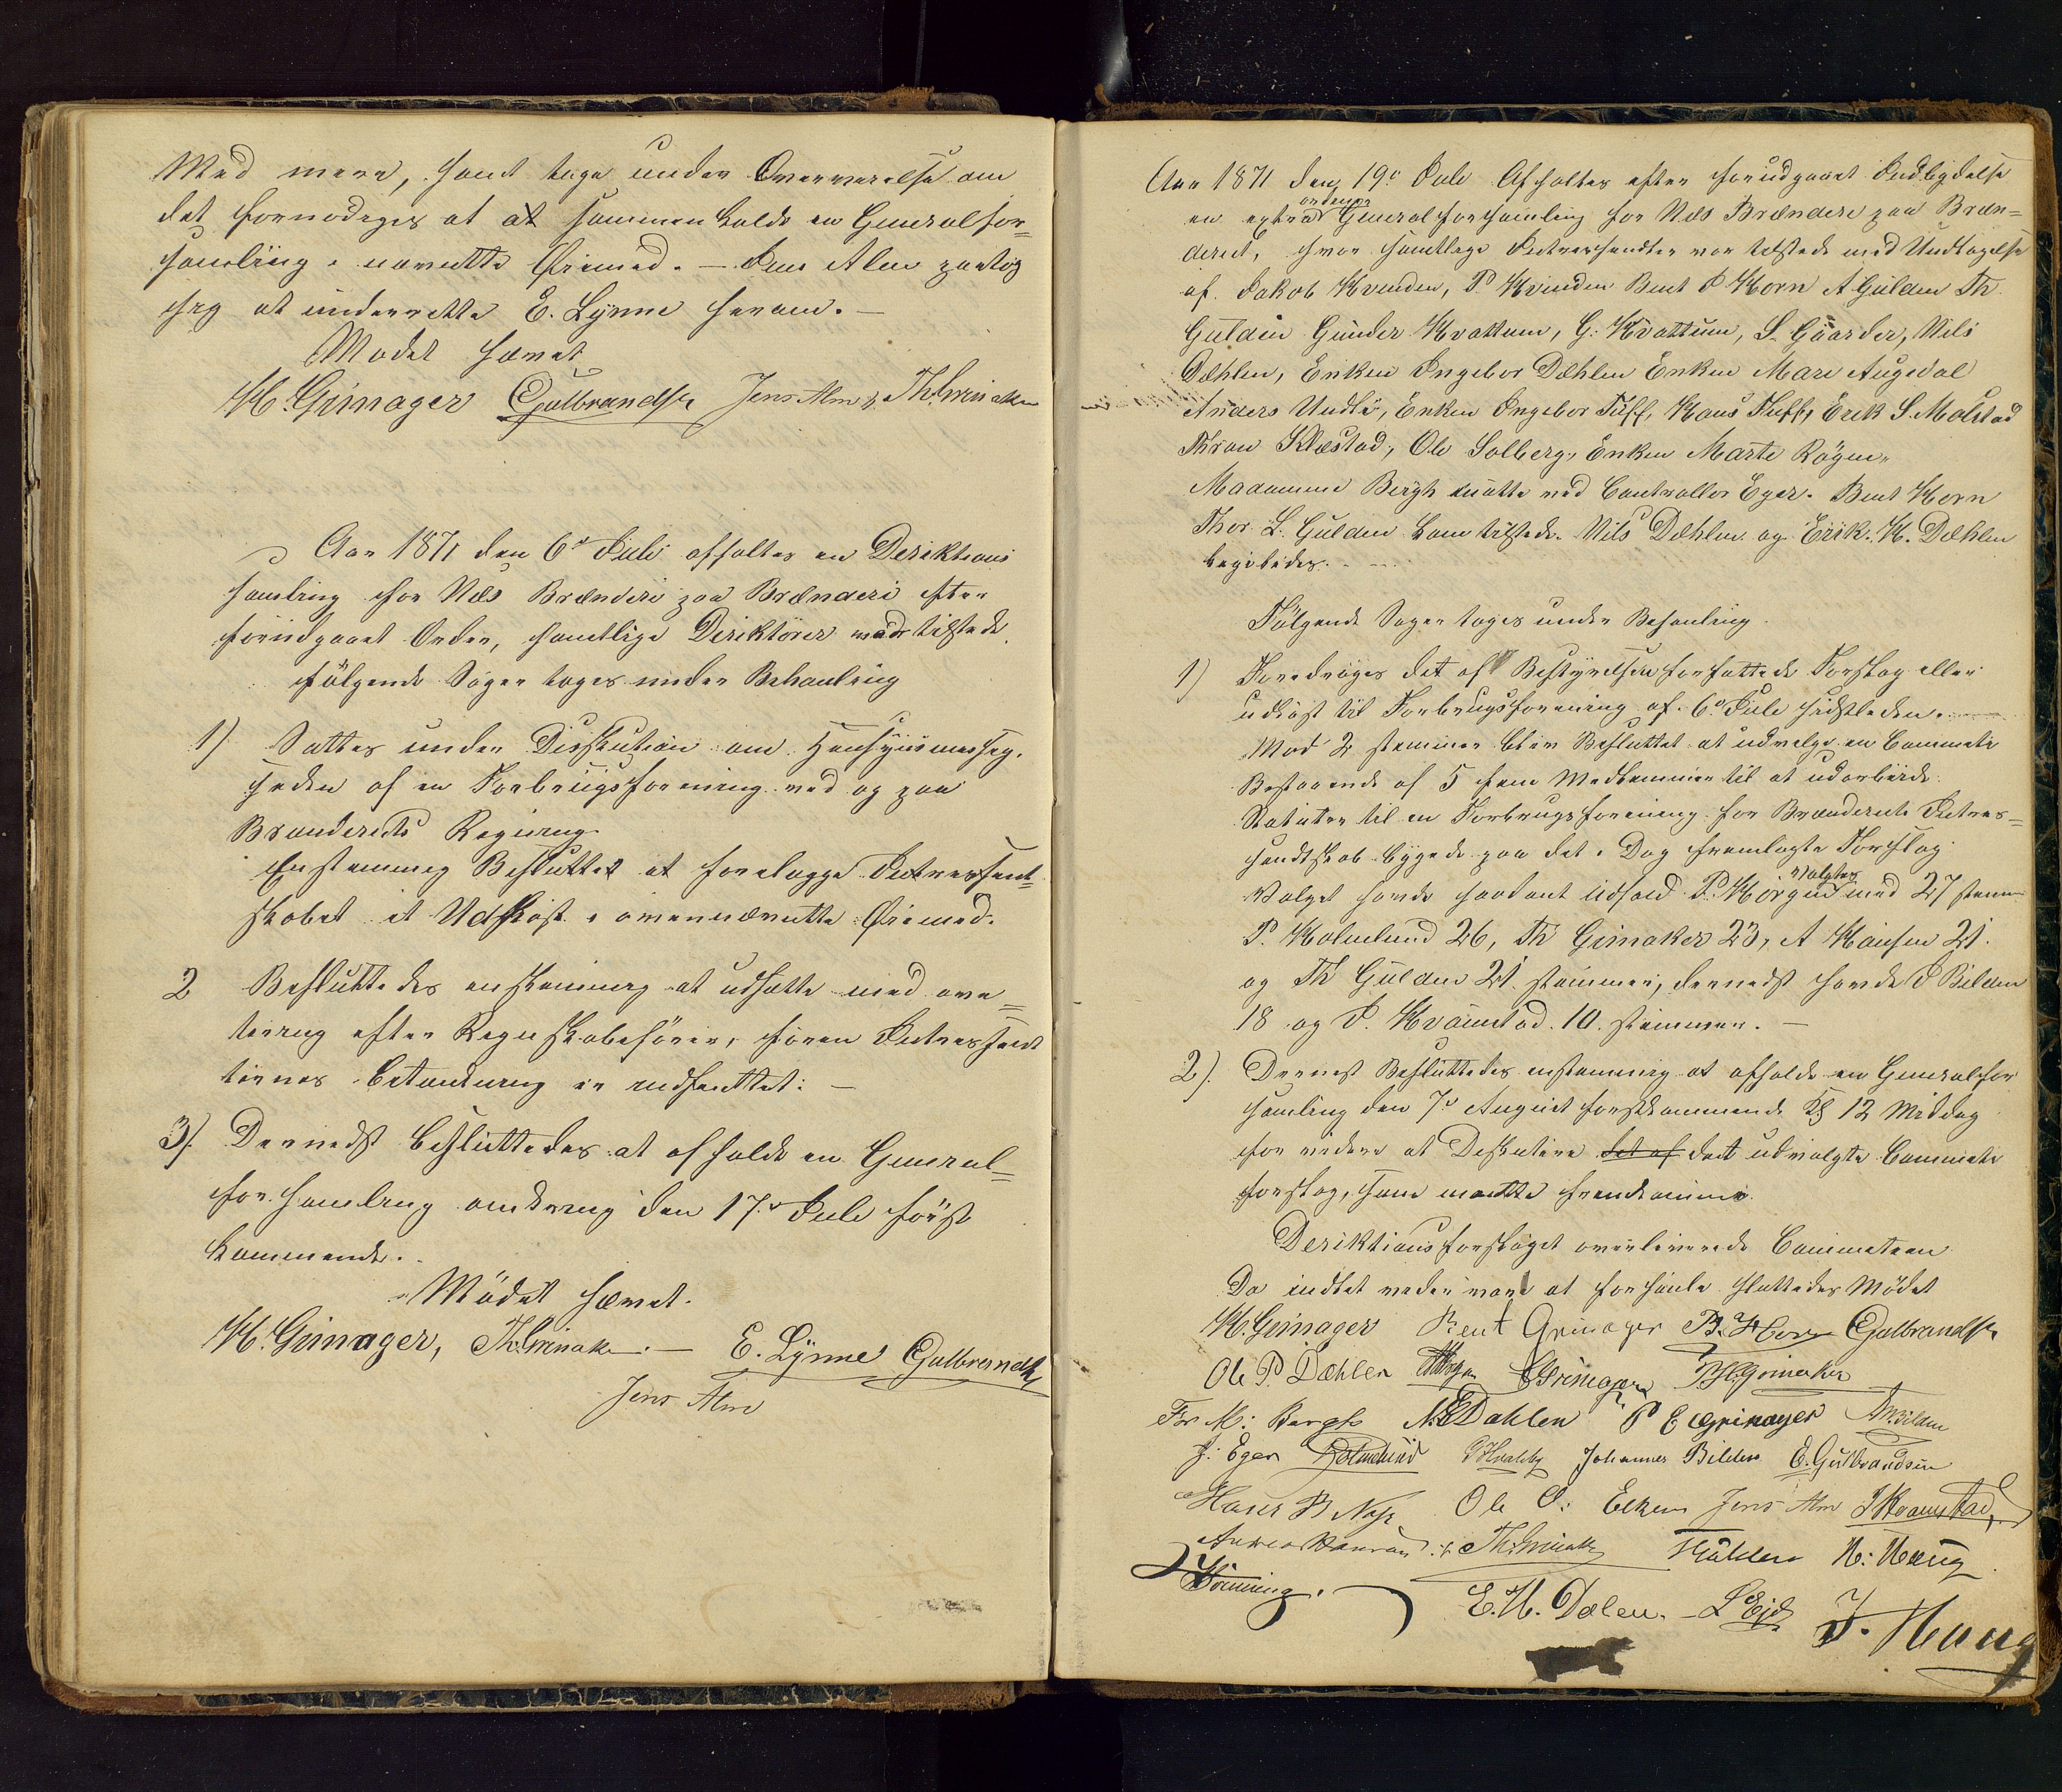 Med mere, samt tage under Overveielse om
det fornødeges at at sammenkalde en Generalfor=
samling i nævnte Øiemed. — Jens Alm paatog
seg at underrette E. Lynne herom. —
Mødet hævet
H. Grinager Gulbrandsen Jens Alm Th. Grinaker
Aar 1871 den 6te Juli afholtes en Deriktions
samling for Næs Brænderi paa Brænderi efter
forudgaaet Orden, samtlige Deriktører møde tilstede.
følgende Sager toges under Behanling
1) Sattes under Disskution om Hensyiismesseg.
heden af en Forbrugsforening ved og paa
Branderiets Regning.
Enstemmeg Besluttet at forelægge Intressent=
skabet et Udkast i ovennævnte Øiemed.
2 Besluttedes enstemmeg at udsætte med ave
tering efter Regnskabsfører, føren Intressent
tirnes Betænkning er indhenttet: —
3). Dernedst besluttedes at afholde en General=
forsamling omkreng den 17de Juli først
kommende.
Mødet hævet.
H. Grinager, Th. Grinaker. — E. Lynne Gulbrandsen
Jens Alm
Aar 1871 den 19de Juli Afholtes efter forudgaaet Indbydelse
ordinær
en extra Generalforsamling for Næs Brænderi paa Bræn=
deriet, hvor samtlege Intressendter var tilstede med Undtagelse
af Jakob Hvinden, P. Hvinden Bent P Horn A Gulden Th.
Gulden Gunder Hvattum, G. Hvattum, S. Gaarder, Nils
Dæhlen, Enken Ingebor Dæhlen Enken Mari Augedal
Anders Undli, Enken Ingebor Tuff, Hans Tuff, Erik S. Molstad
Thron Klæstad, Ole Solberg, Enken Marte Røgen,
Madamme Bergh møtte ved Controllør Eger. Bent Horn
Thor L. Gulden kom tilstede. Nils Dæhlen og Erik H. Dæhlen
ligeledes.
Følgende Sager toges under Behanling.
1) Foredroges det af Bestyrelsen forfattede Forslag eller
udkast til Forbrugsforening af 6te Juli sidstleden. —
Mod 2 stemmer blev Besluttet at udvelge en Commete
Bestaaende af 5 fem Medlemmer til at udarbeide
Statuter til en Forbrugsforening for Brænderiets Intres=
sendtskab byggede paa det i Dag fremlagte Forslag.
Valgtes
Valget havde saadant udfald P. Hørgen med 27 stem
P. Holmlund 26, Th Grinaker 23, A Hansen 21.
og Th Gulden 21 stemmer, dernedst havde J Bilden
18 og J. Hvamstad. 10. stemmer. —
2). Dernest Besluttedes enstemmeg at afholde en Generalfor
samling den 7de August førstkommende Kl 12 Middag
for videre at Deskutere det af det udvalgte Commete
forslag, som maatte fremkomme.
Deriktionsforslaget overleverede Commeteen
Da indtet videre vare at forhanle sluttedes Mødet
H. Grinager Bent Grinager B. Horn Gulbrandsen
Ole P. Dæhlen Grinager Th. Grinaker
For M: Bergh N. E Dahlen P E Grinager A M Bilden
J: Eger Holmelund Johannes Bilden E. Gulbrandsen
Hans B Næss Ole O: Elken Jens Alm J Hvamstad,
Anders Hansen Th. Grinaker T Gulden N: Haug
Hörning. E. H. Dælen. L Eid J. Haug